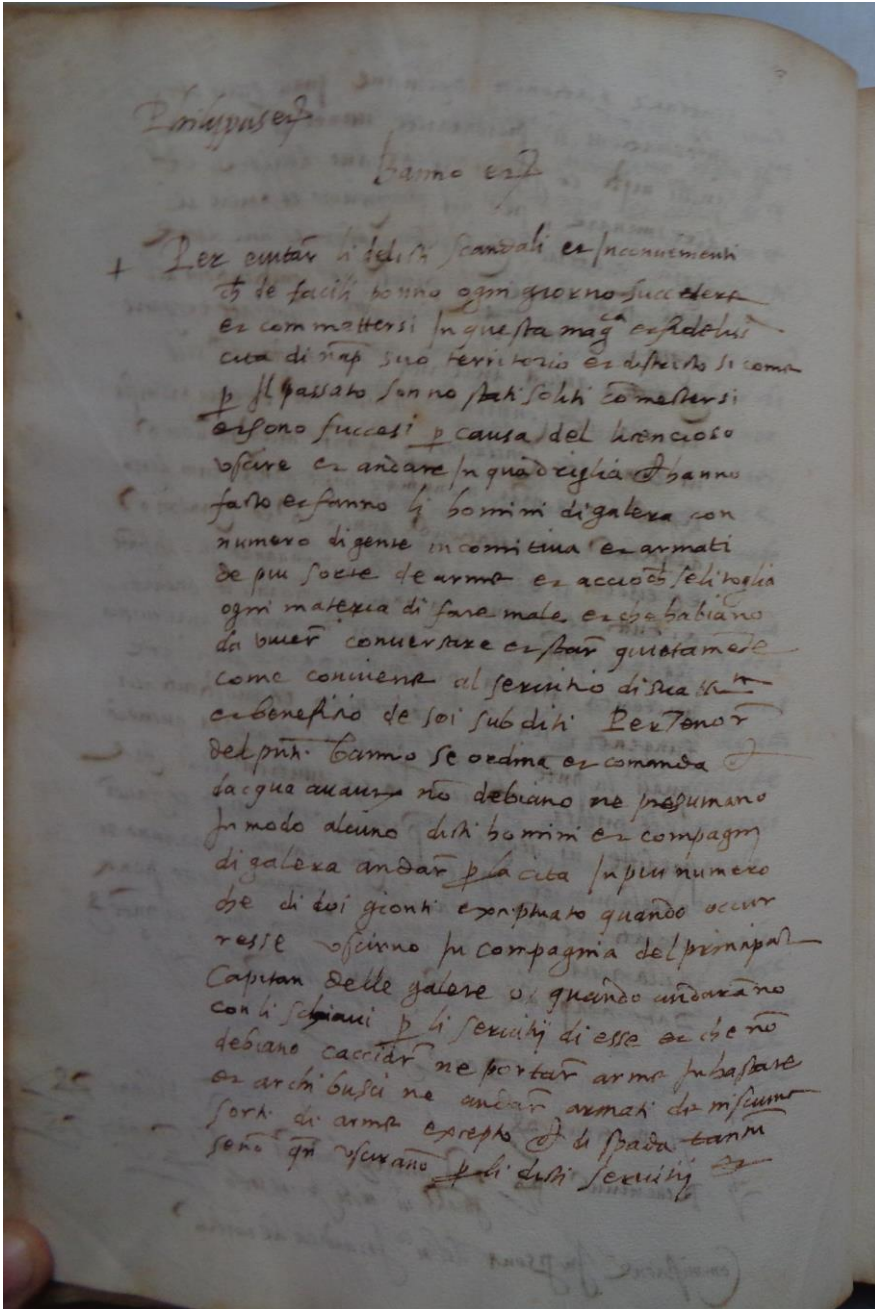 Philippus etc
banno etc
+ Per evitar li delicti scandali et Inconvenienti
ch de facili ponno ogni giorno succedere
et commettersi In questa mag.ca et fidelis
cita di nap suo territorio et districto si come
p Il passato sonno stati soliti comettersi
et sono successi p causa del licencioso
uscire et andare In quadriglia ch hanno
facto et fanno li homini di galera con
numero di gente in comitiva et armati
de piu sorte de arme et accioch se li toglia
ogni materia di fare male et che habiano
da viver conversare et star quietamete
come conviene al servitio di sua M.tà
et beneficio de soi subditi Per Tenor
del pnt. banno se ordina et comanda ch
da cqua avante no debiano ne presumano
In modo alcuno dicti homini et compagni
di galera andar p la cita In piu numero
che di doi gionti exceptuato quando occur
resse uscirno In compagnia del principal
Capitan delle galere o quando andarano
con li schiavi p li servitij di esse et che no
debiano cacciar ne portar arme In hastate
et archibusci ne andar armati de niscuna
sorte di arme excepto ch di spada tantu
seno qn uscirano p li dicti servitij et